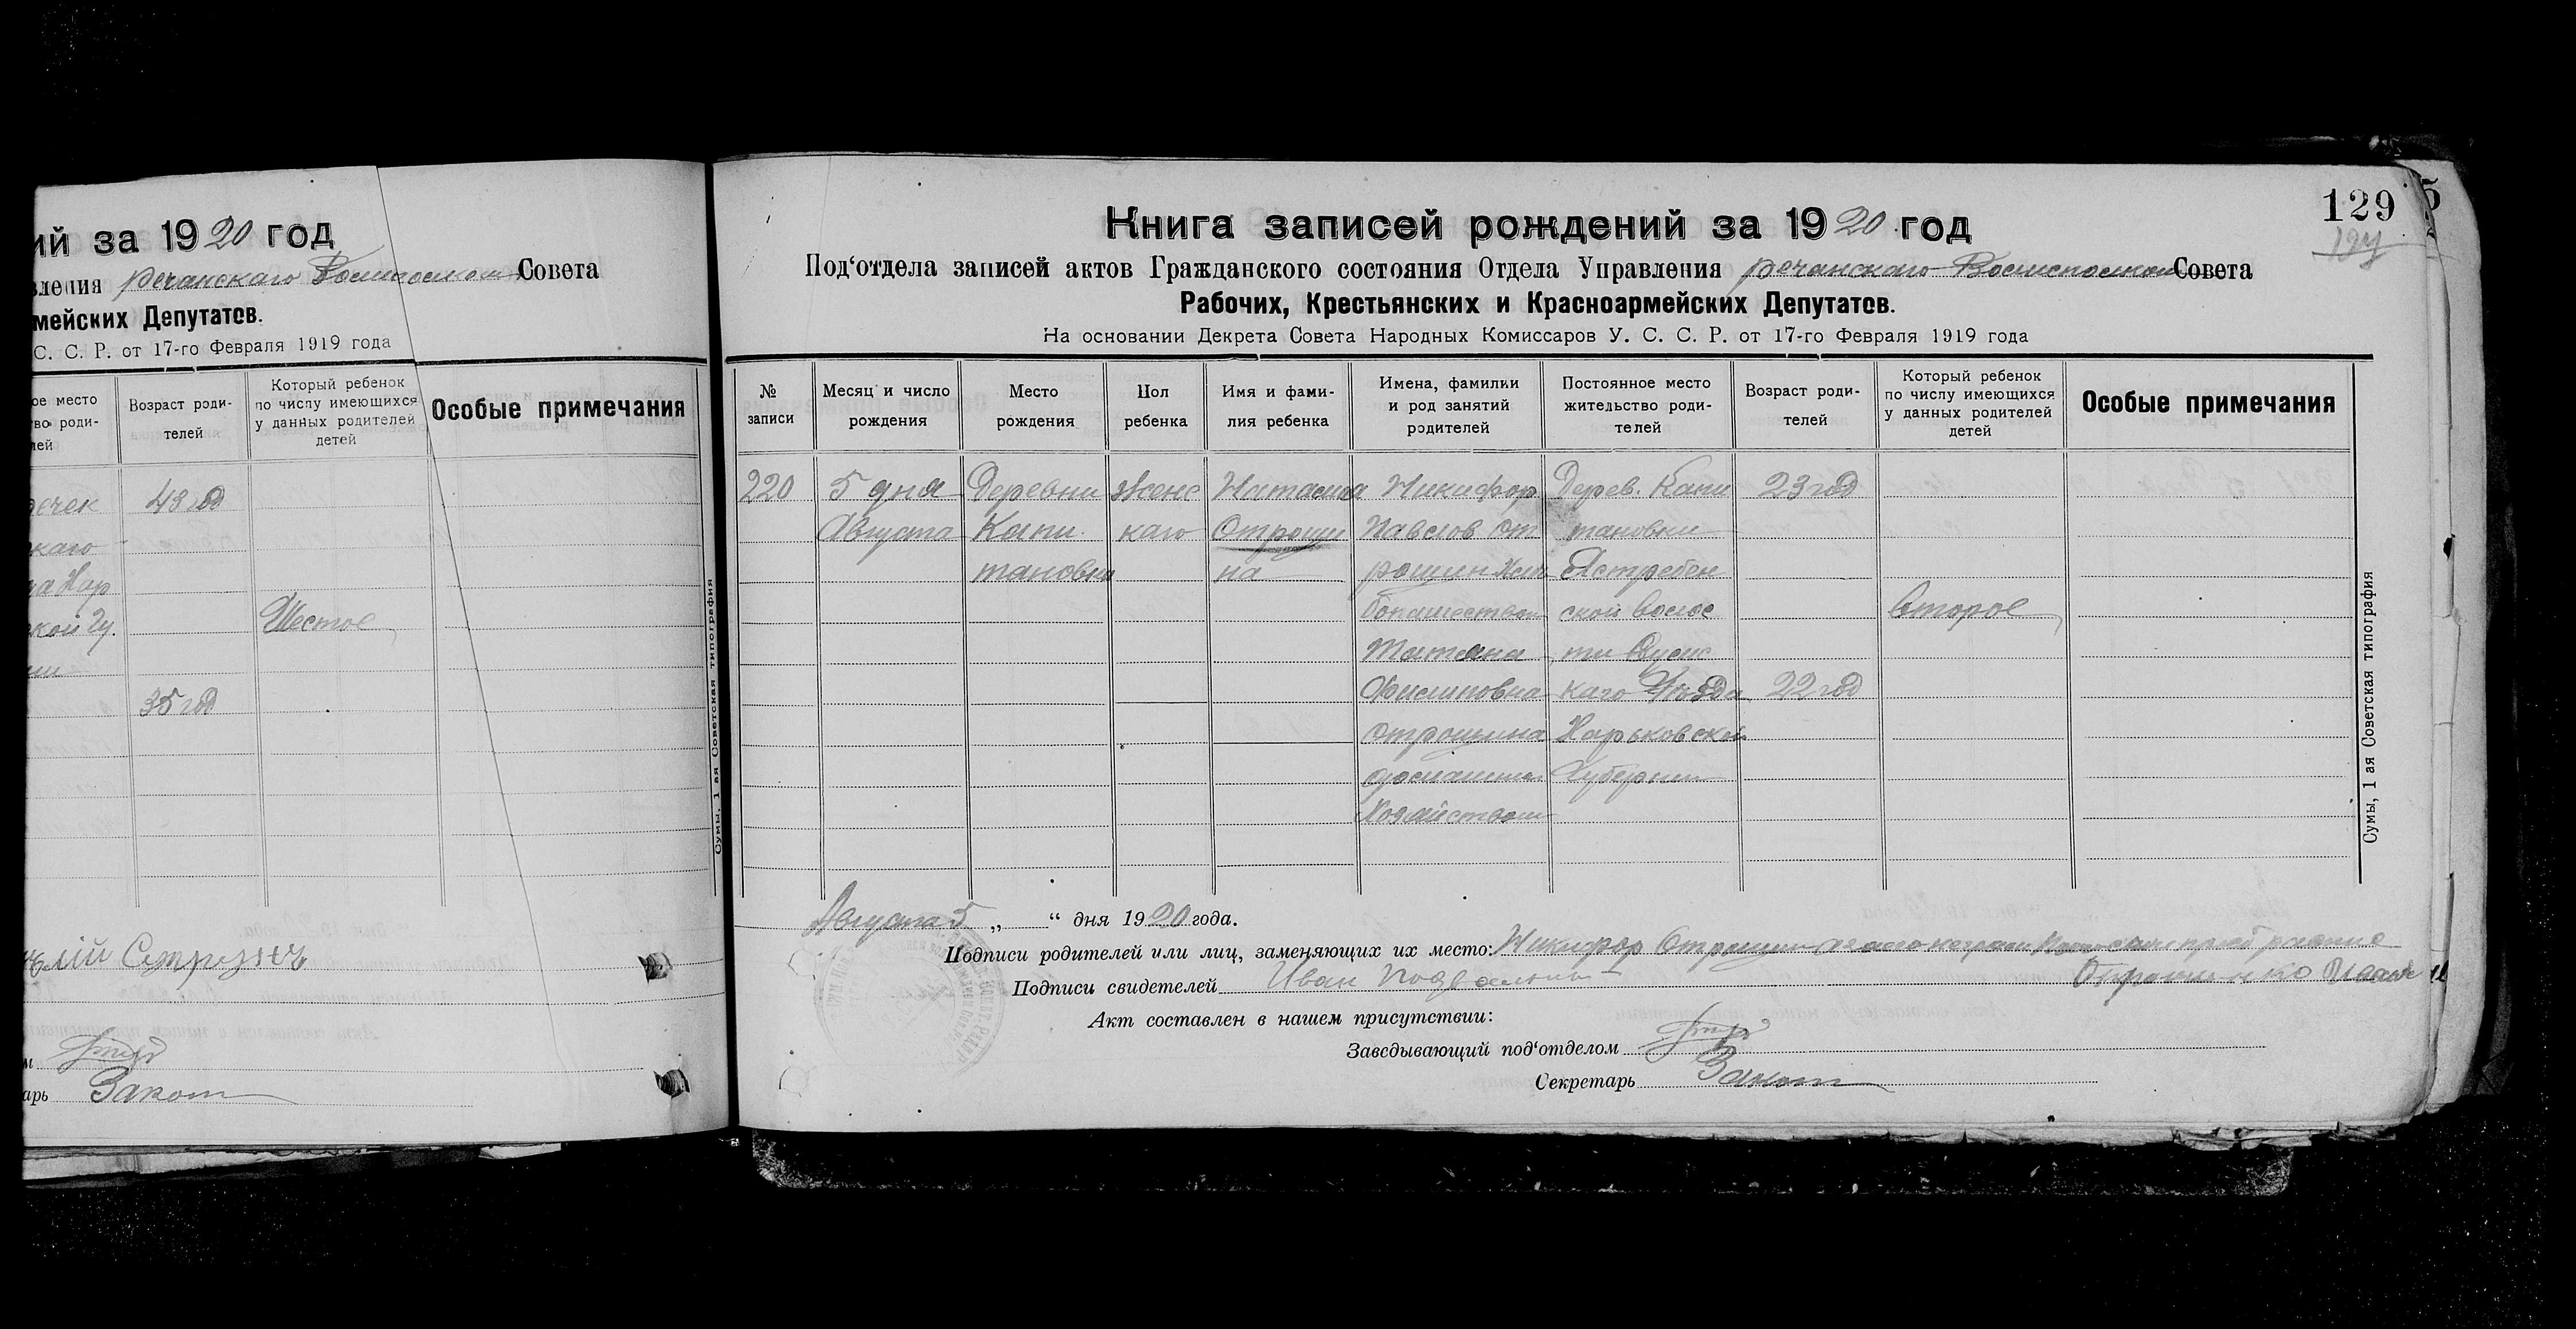 ий за 1920 год
вления речанскаго Совета
мейских Депутатов.
С. С. Р. от 17-го Февраля 1919 года
ое место
во роди-
лей
Возраст роди-
телей
Который ребенок
по числу имеющихся
у данных родителей
детей
Особые примечания
48 год
каго
кой Гу.
Шестое
35 год
Сумы, 1 ая Советская типография
Закот
129
Книга записей рождений за 1920 год
Под‘отдела записей актов Гражданского состояния Отдела Управления речанскаго Совета
Рабочих, Крестьянских и Красноармейских Депутатов.
На основании Декрета Совета Народных Комиссаров У. С. С. Р. от 17-го Февраля 1919 года
№
записи
Месяц и число
рождения
Место
рождения
Пол
ребенка
Имя и фами-
лия ребенка
Имена, фамилии
и род занятий
родителей
Постоянное место
жительство роди-
телей
Возраст роди-
телей
Который ребенок
по числу имеющихся
у данных родителей
детей
Особые примечания
220
5 дня
Августа
Деревни
Капи
тановки
Женс
каго
Наташа
Отроши
на
Никифор
Павлов От
рошин Хле
бопашеством
Татяна
Филиповна
Отрошина
домашним
Хозяйством
Дерев. Капи
тановки
Ястребен
ской волос
ти
каго Уѣзда
Харьковской
Губернии
23 год
22 год
Второе
Сумы, 1 ая Советская типография
Августа 5 „ “ дня 1920 года.
Подписи родителей или лиц, заменяющих их место: Никифор Отрошин
Подписи свидетелей Иван
Акт составлен в нашем присутствии:
Заведывающий под‘отделом
Секретарь Закот